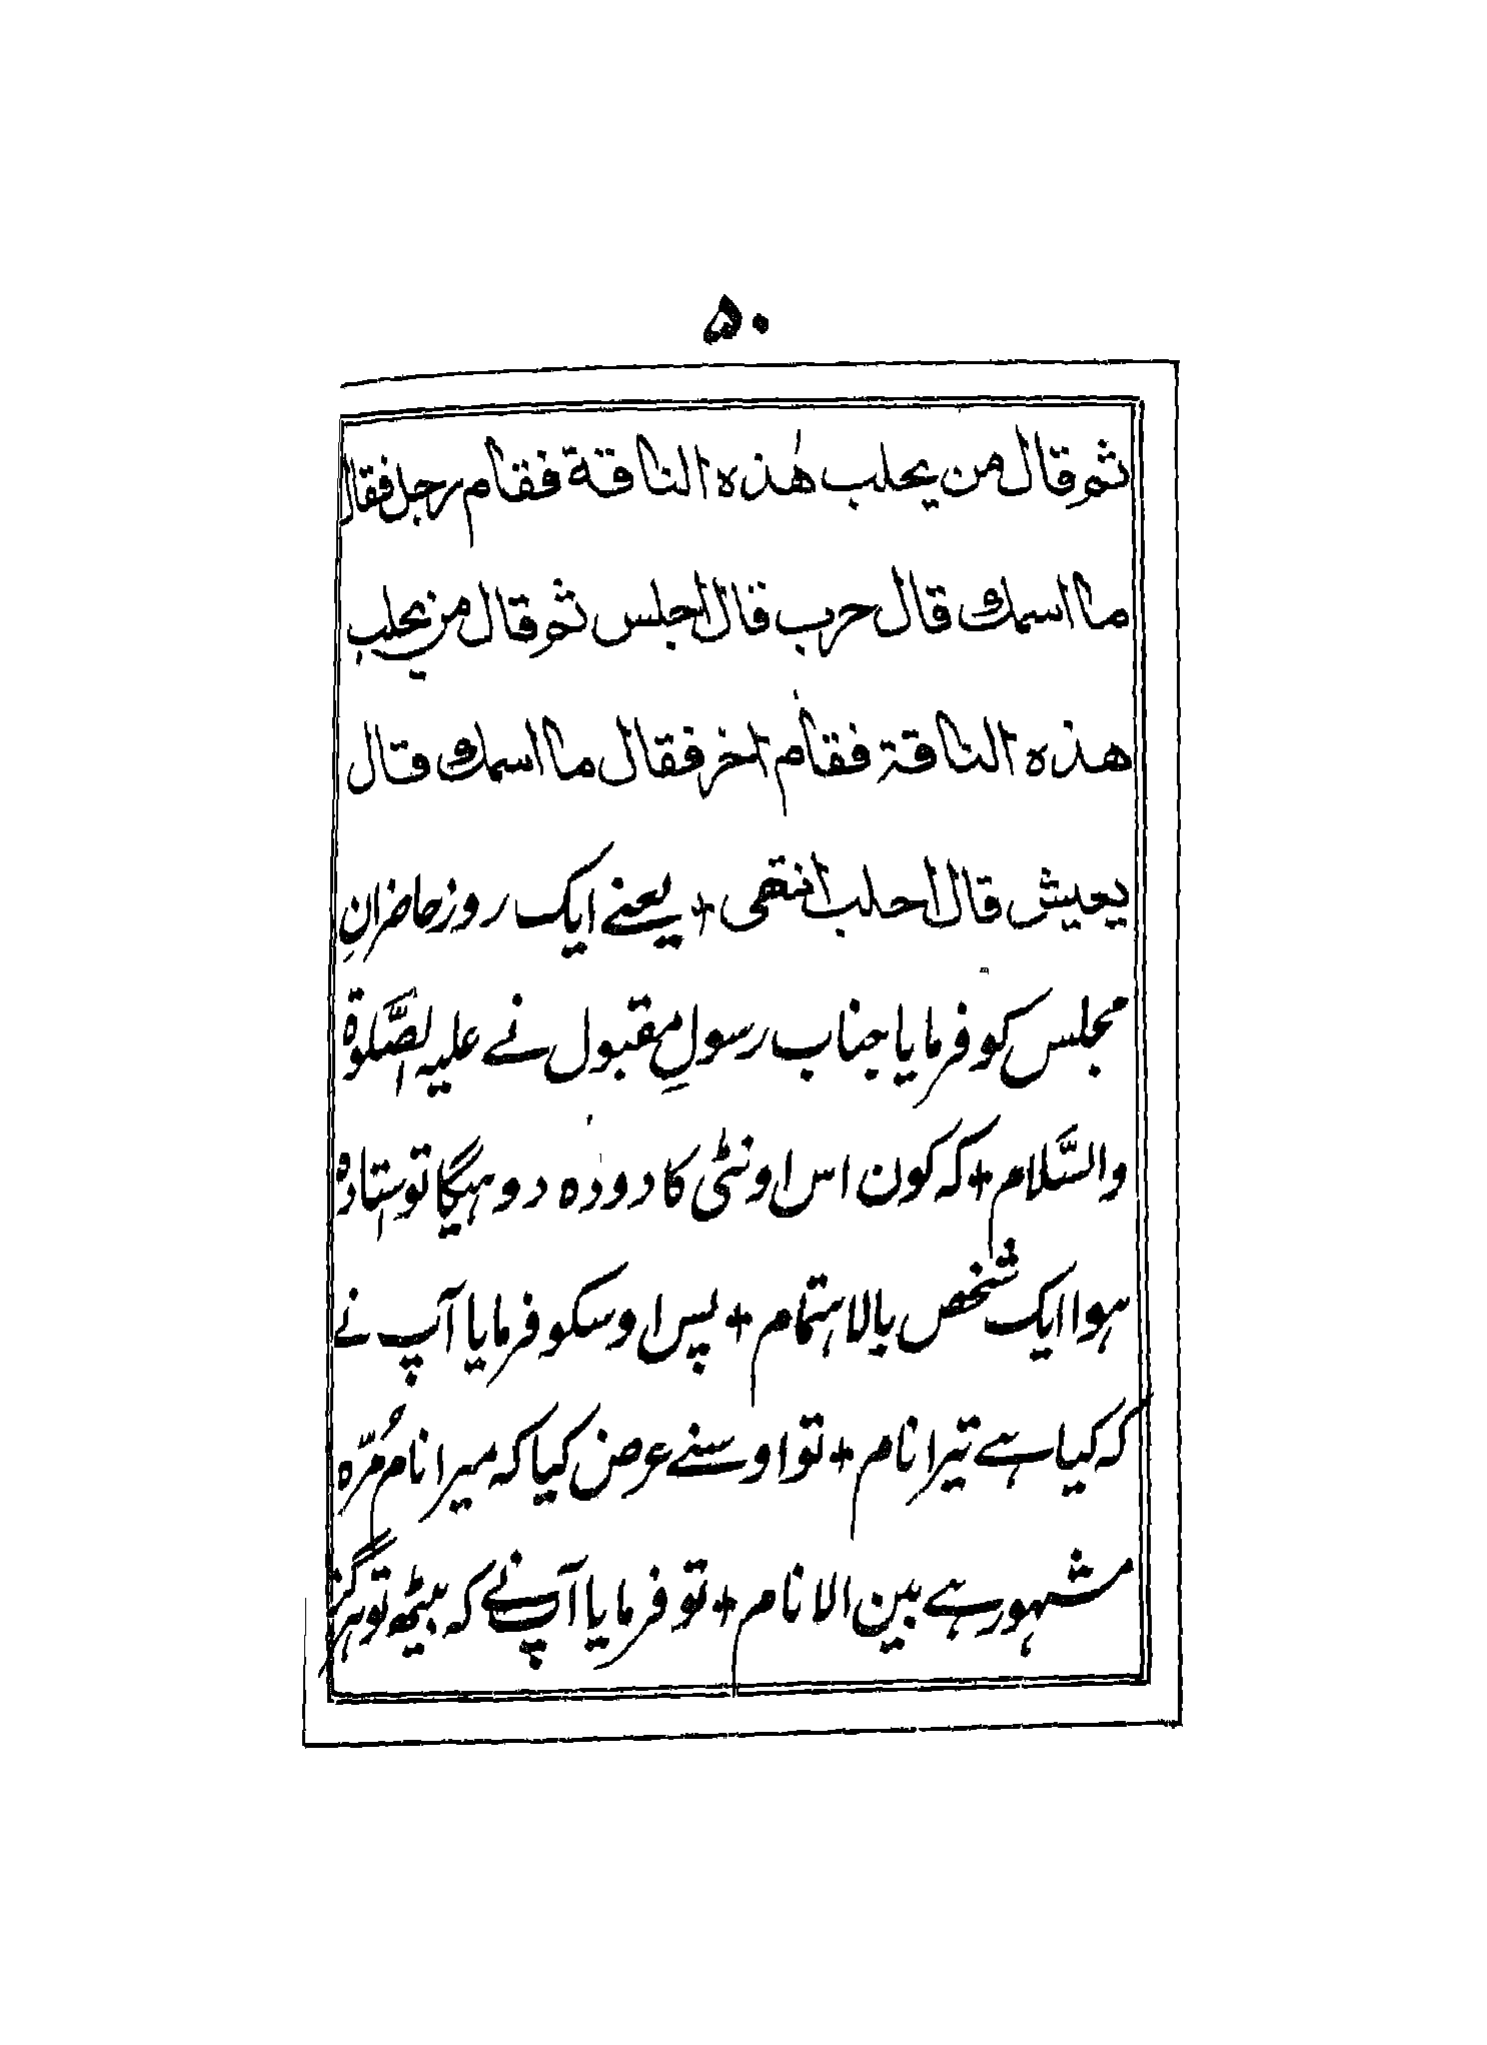 ۵۰
ثم قال من يحلب هٰذه الناقة فقام رجل فقال
ما اسمك قال حرب قال اجلس ثم قال من يحلب
هذه الناقة فقام اٰخر فقال ما اسمك قال
يعيش قال احلب انتهى + یعنے ایک روز حاضرانِ
مجلس کو فرمایا جناب رسولِ مقبول نے علیہ الصَّلوة
والسَّلام + کہ کون اس اونٹی کا دودہ دوہیگا تو ستادہ
ہوا ایک شخص بالاہتمام + پس اوسکو فرمایا آپ نے
کہ کیا ہے تیرا نام + تو اوسنے عرض کیا کہ میرا نام مُرّہ
مشہور ہے بین الانام + تو فرمایا آپ نے کہ بیٹھ تو ہرگز